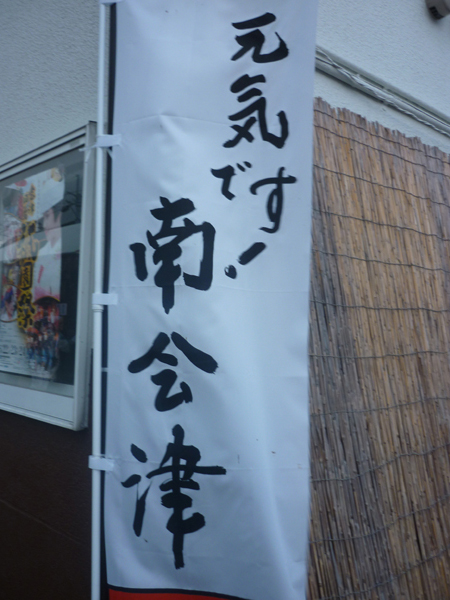 元気です!
南会津